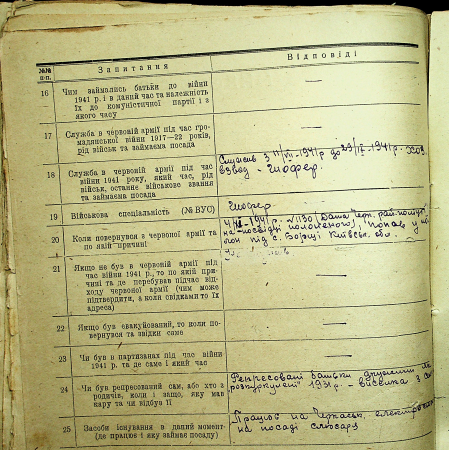 №№ п.п.
Запитання
Відповіді
16
Чим займались батьки до війни
1941 р. і в даний час та належність
їх до комуністичної партії і з
якого часу
—
17
Служба в червоній армії під час гро-
мадянської війни 1917—22 років,
рід військ та займаема посада
—
18
Служба в червоній армії під час
війни 1941 року, який час, рід
військ, останнє військове звання
та займаема посада
Служив з 11/VII-1941 р до 29/IX-1941 р. ХОЗ.
взвод - шофер.
19
Військова спеціальність (№ ВУС)
Шофер.
20
Коли повернувся з червоної армії та
по якій причині
на посвідці
попав у
під с. Борщі Київськ. обл.
21
Якщо не був в червоній армії під
час війни 1941 р., то по якій при-
чині та де перебував підчас від-
ходу червоної армії (чим може
підтвердити, а коли свідками то їх
адреса)
—
22
Якщо був евакуйований, то коли по-
вернувся та звідки саме
—
23
Чи був в партизанах під час війни
1941 р. та де саме і який час
—
24
Чи був репресований сам, або хто з
родичів, коли і защо, яку мав
кару та чи відбув її
Репресовані батьки дружини
1931 р. - висилка з
25
Засоби існування в даний момент
(де працює і яку займає посаду)
Працює на Черкаськ. електро
на посаді слюсаря